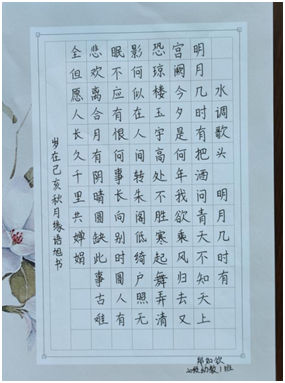 水调歌头 明月几时有
明月几时有把洒问青天不知天上
宫阙今夕是何年我欲乘风归去又
恐琼楼玉宇高处不胜寒起舞弄清
影何似在人间转朱阁低绮户照无
眠不应有恨何事长向别时圆人有
悲欢离合月有阴晴圆缺此事古难
全但愿人长久千里共婵娟
岁在己亥秋月缘语旭书
幼教1班